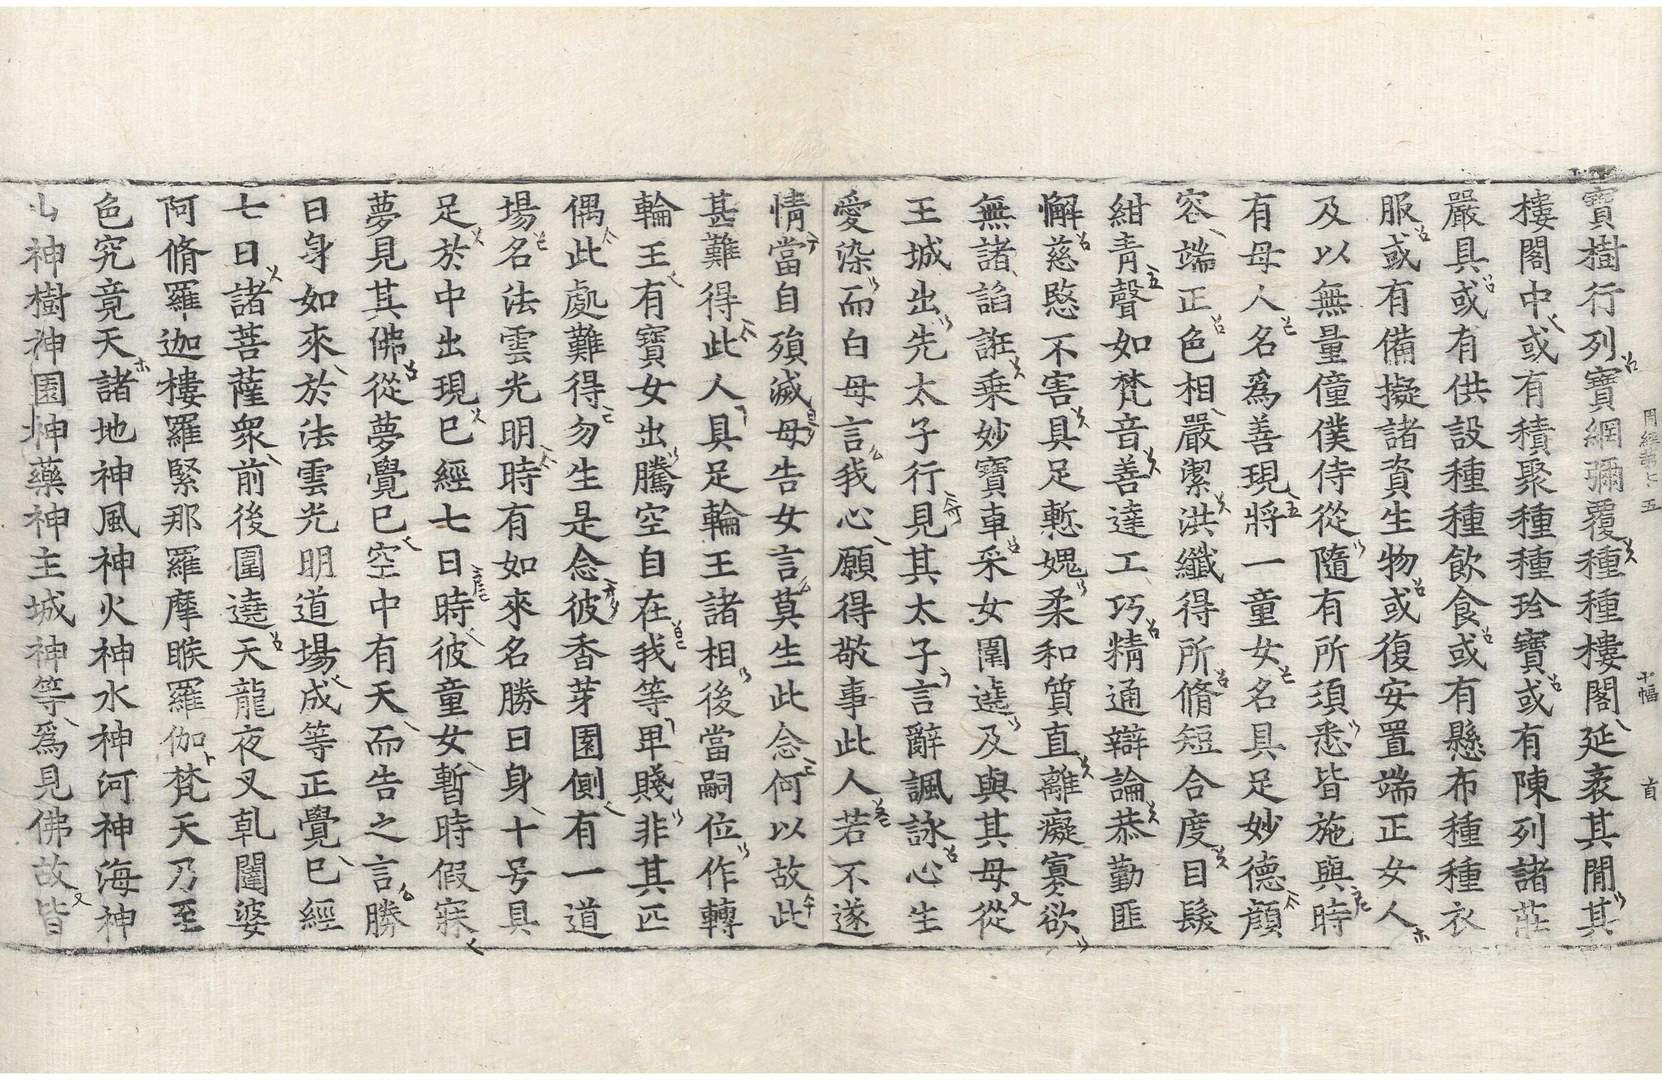 周經第七五 十幅 首
寶樹行列寶網彌覆種種樓閣延袤其間其
樓閣中或有積聚種種珍寶或有陳列諸莊
嚴具或有供設種種飲食或有懸布種種衣
服或有備擬諸資生物或復安置端正女人
及以無量僮僕侍從隨有所須悉皆施與時
有母人名爲善現將一童女名具足妙德顔
容端正色相嚴潔洪纖得所脩短合度目髮
紺青聲如梵音善達工巧精通辯論恭勤匪
懈慈愍不害具足慙愧柔和質直離癡寡欲
無諸諂誑乗妙寶車采女圍遶及與其母從
王城出先太子行見其太子言辭諷詠心生
愛染而白母言我心願得敬事此人若不遂
情當自殞滅母告女言莫生此念何以故此
甚難得此人具足輪王諸相後當嗣位作轉
輪王有寶女出騰空自在我等卑賤非其匹
偶此處難得勿生是念彼香芽園側有一道
場名法雲光明時有如來名勝日身十号具
足於中出現已經七日時彼童女暫時假寐
夢見其佛從夢覺已空中有天而告之言勝
日身如來於法雲光明道場成等正覺已經
七日諸菩薩衆前後圍遶天龍夜叉乹闥婆
阿脩羅迦樓羅緊那羅摩睺羅伽梵天乃至
色究竟天諸地神風神火神水神河神海神
山神樹神園神藥神主城神等爲見佛故皆